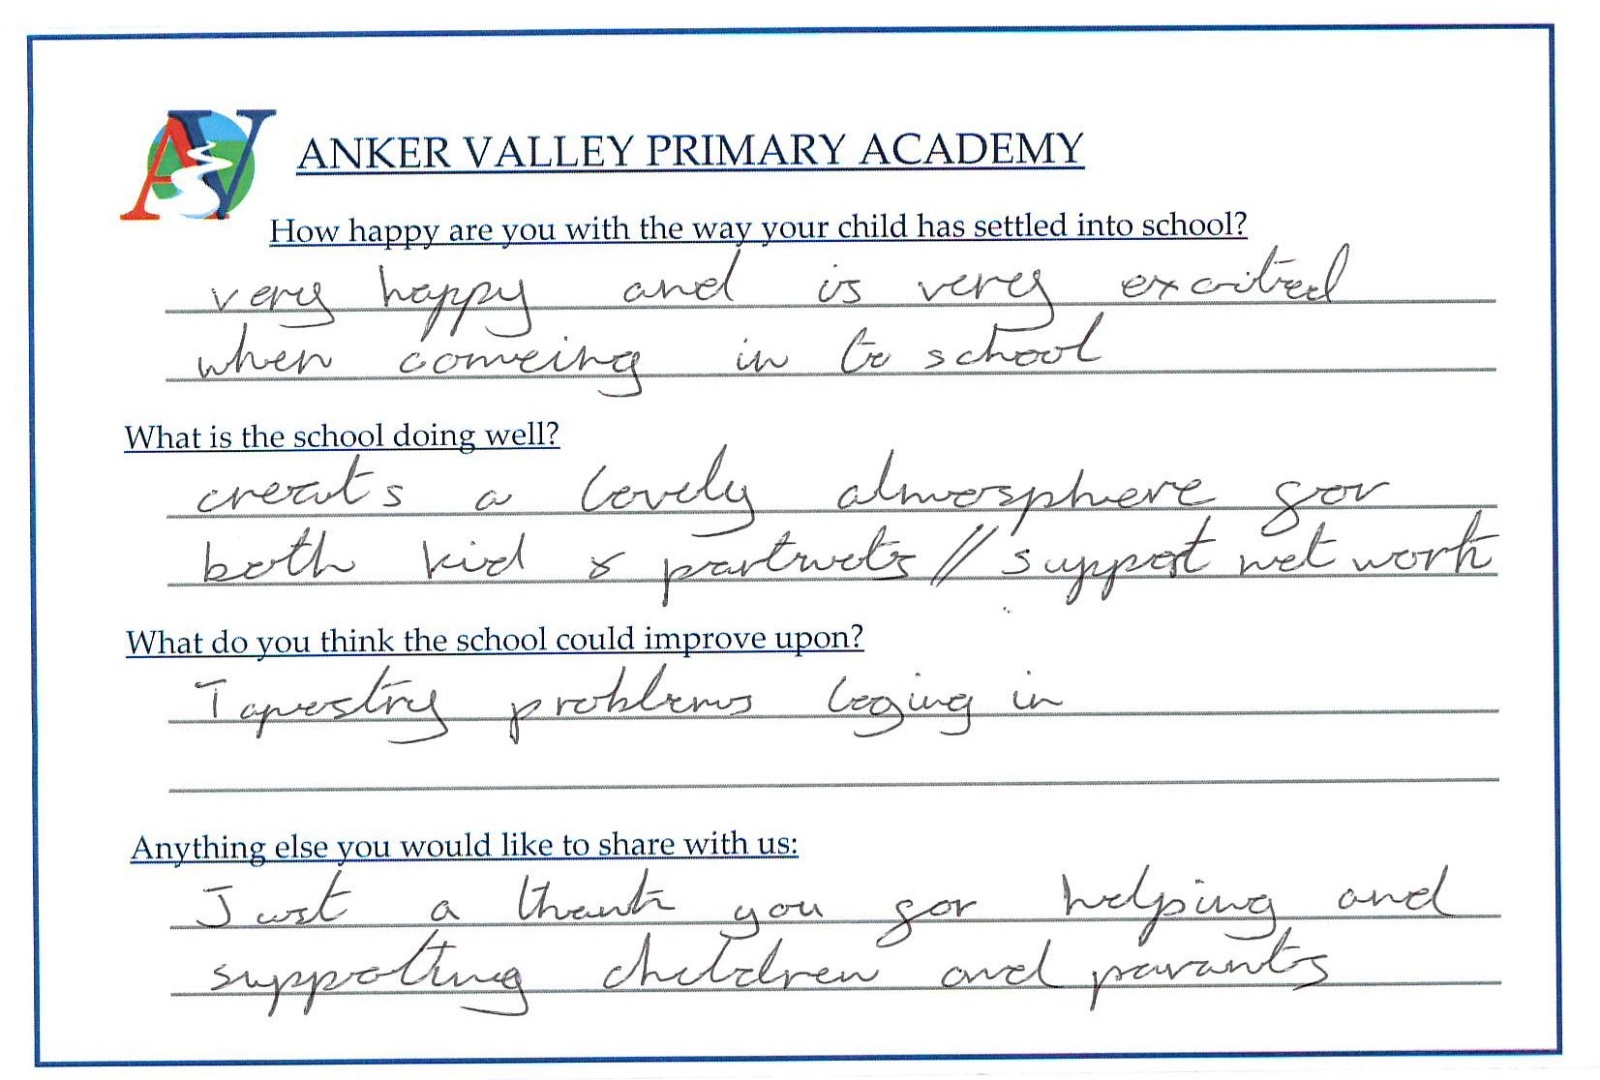 AV
ANKER VALLEY PRIMARY ACADEMY
How happy are you with the way your child has settled into school?
very happy and is very excited
when comeing in to school
What is the school doing well?
creats a lovely atmosphere for
both kid & // support net work
What do you think the school could improve upon?
Tapestry problems loging in
Anything else you would like to share with us:
Just a thank you for helping and
supporting children and parants